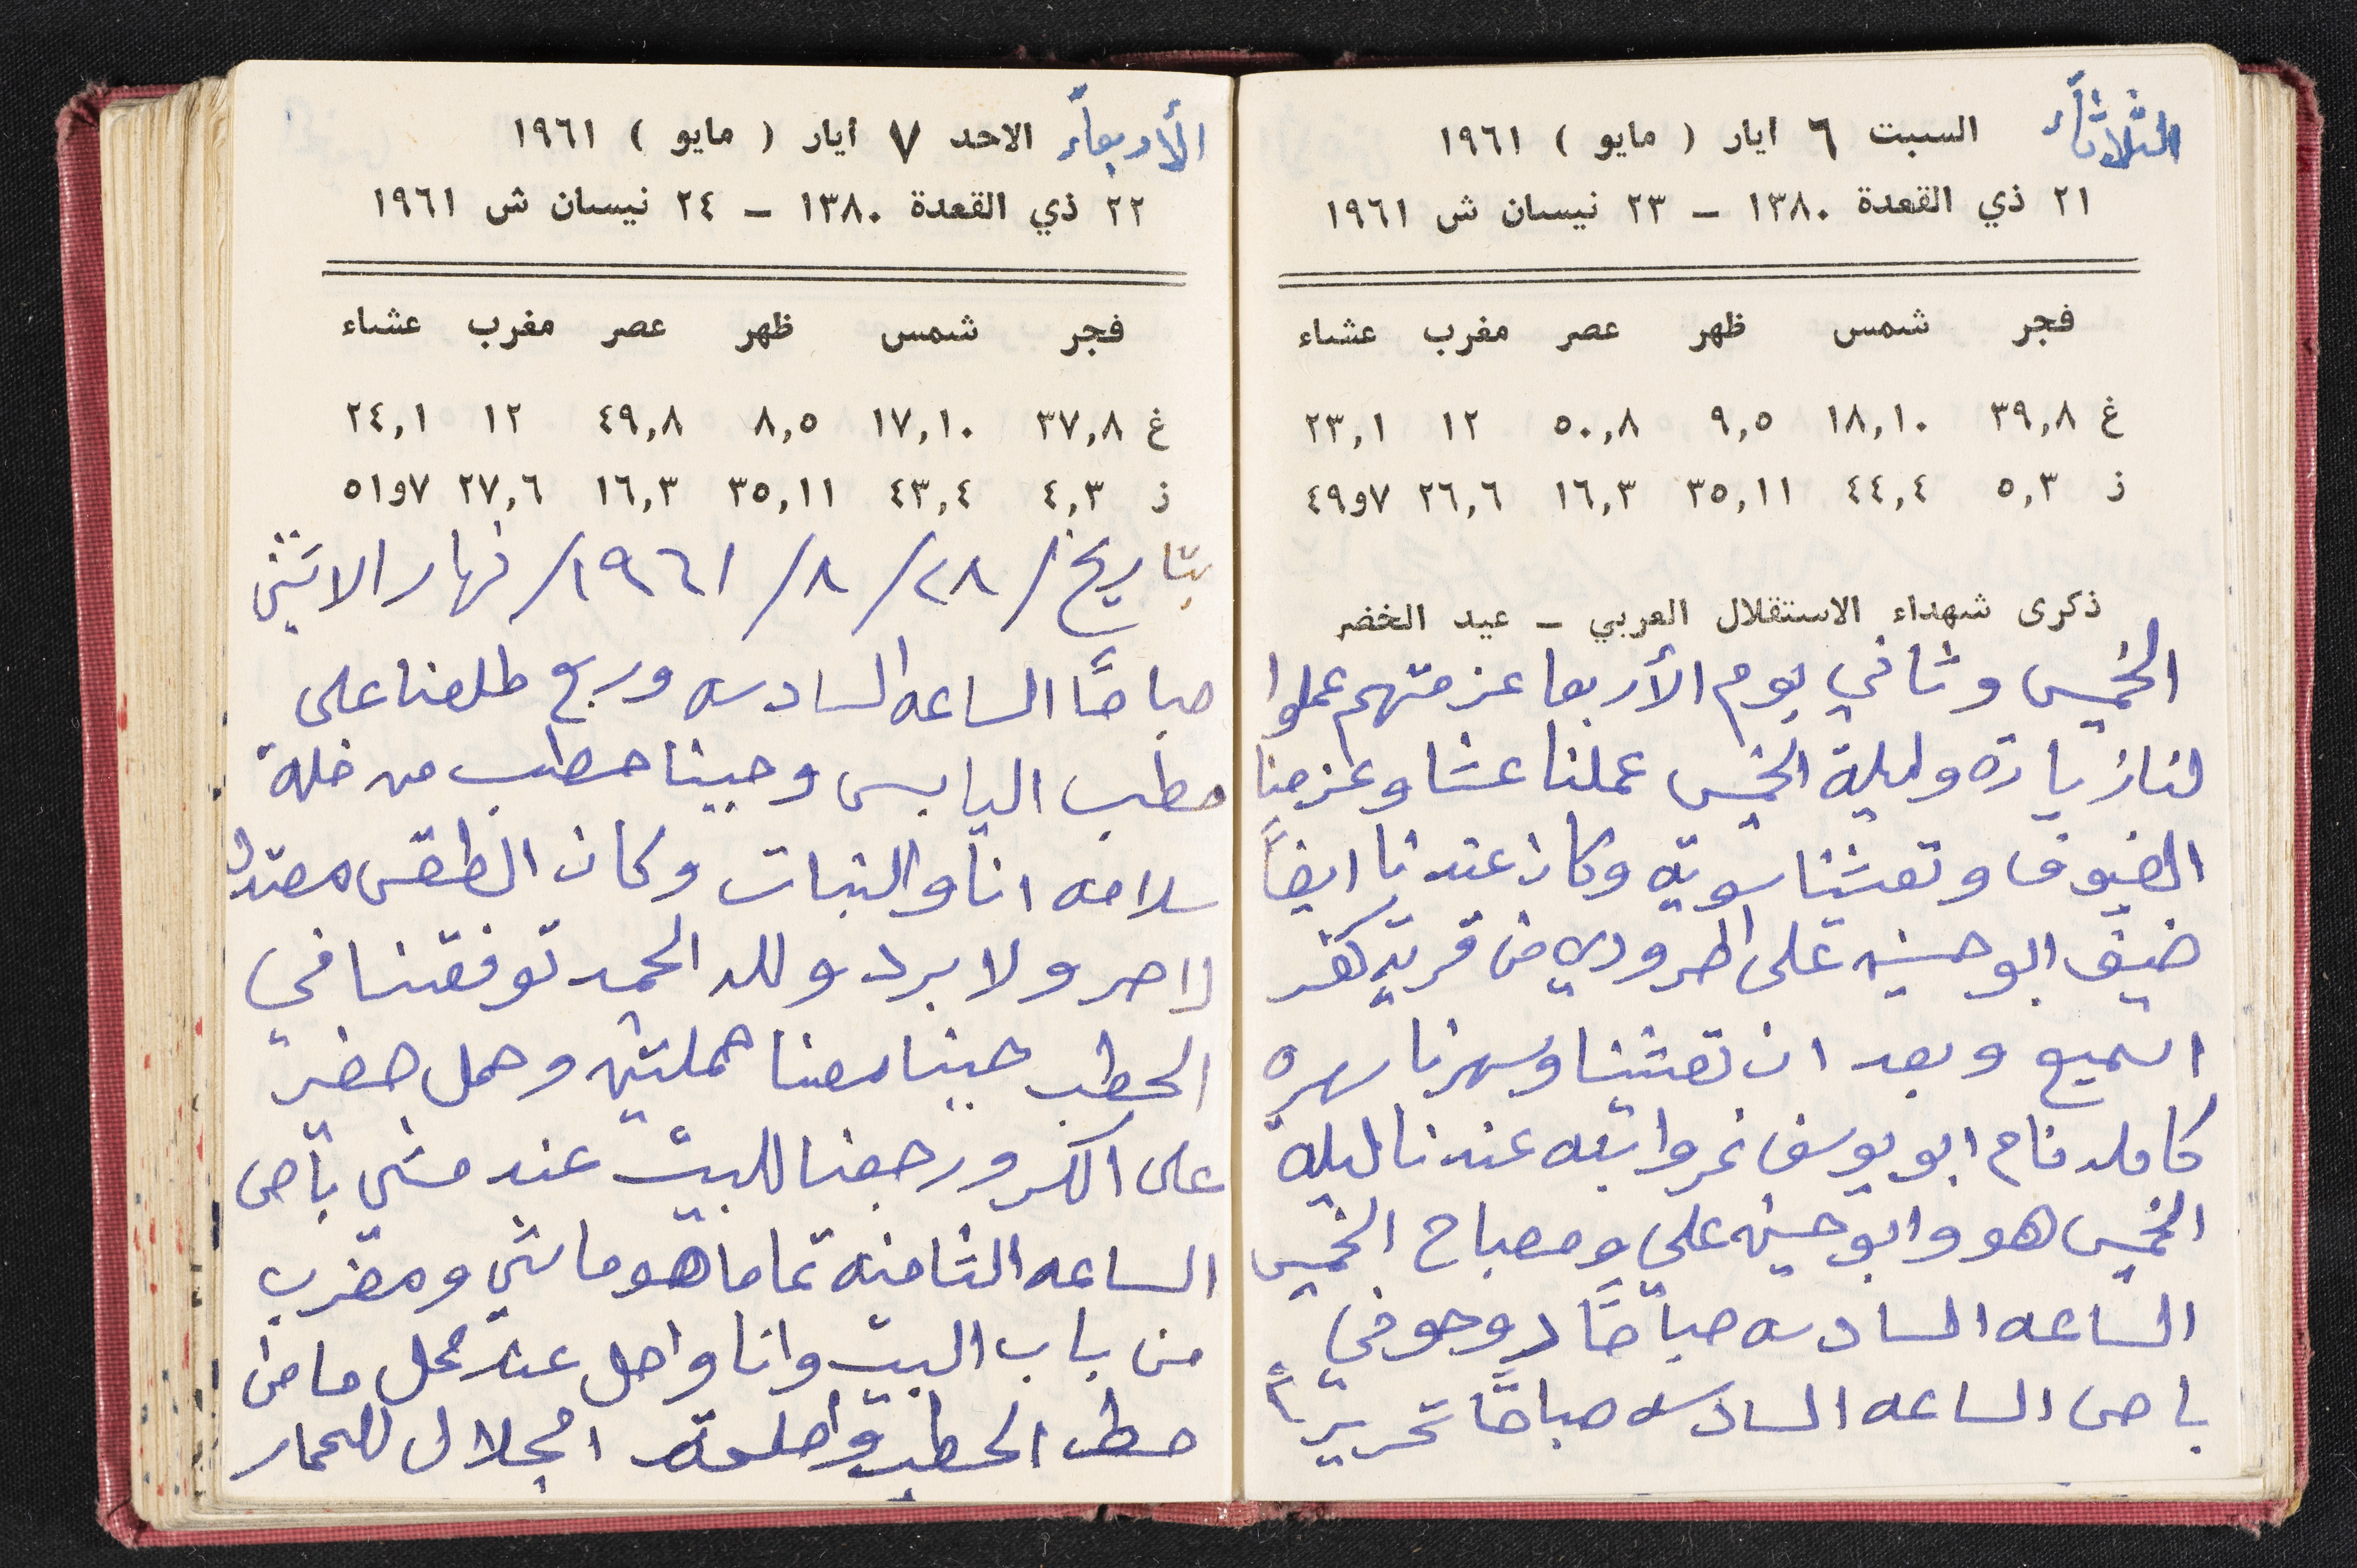 الثلاثاء السبت ٦ ايار ( مايو ) ١٩٦١
٢١ ذي القعدة ١٣٨٠ – ٢٣ نيسان ش ١٩٦١
فجر شمس ظهر عصر مغرب عشاء
غ ٣٩,٨ ١٨,١٠ ٩,٥ ٥٠,٨ ١٢ ٢٣,١
ز ٥,٣ ٤٤,٤ ٣٥,١١ ١٦,٣ ٢٦,٦ ٧و٤٩
ذكرى شهداء الاستقلال العربي – عيد الخضر
الخميس وثاني يوم الأربعا عزمتهم عملوا
لنا زيارة وليلة الخميس عملنا عشا وعزمنا
الضيوف وتعشينا سويه وكان عندنا ايضاً
ضيف ابو حسين علي من قرية كفر
السميع وبعد ان تعشينا وسهرنا سهره
كامله نام ابو يوسف نمر وابنه عندنا ليلة
الخميس هو وابو حسين علي ومصباح الخميس
الساعه السادسه صباحاً روحو في
باص الساعه السادسه صباحاً تحريراً
الأربعاء الاحد ٧ ايار ( مايو ) ١٩٦١
٢٢ ذي القعدة ١٣٨٠ – ٢٤ نيسان ش ١٩٦١
فجر شمس ظهر عصر مغرب عشاء
غ ٣٧,٨ ١٧,١٠ ٨,٥ ٤٩,٨ ١٢ ٢٤,١
ز ٤,٣ ٤٣,٤ ٣٥,١١ ١٦,٣ ٢٧,٦ ٧و٥١
بتاريخ /٢٨/ ٨/ ١٩٦١/ نهار الاثنين
صباحاً الساعه السادسه وربع طلعنا على
حطب اليابس وجبنا حطب من خلة
سلامه انا والبنات وكان الطقس معتدل
لا حر ولا برد ولله الحمد توفقنا في
الحطب جبنا معنا حملتين وحمل صغير
على الكر ورجعنا للبيت عند مشي باص
الساعه الثامنه تماما هو ماشي ومقرب
من باب البيت وانا واصل عند محل مامن
حط الحطب واصلحة الجلال للحمار